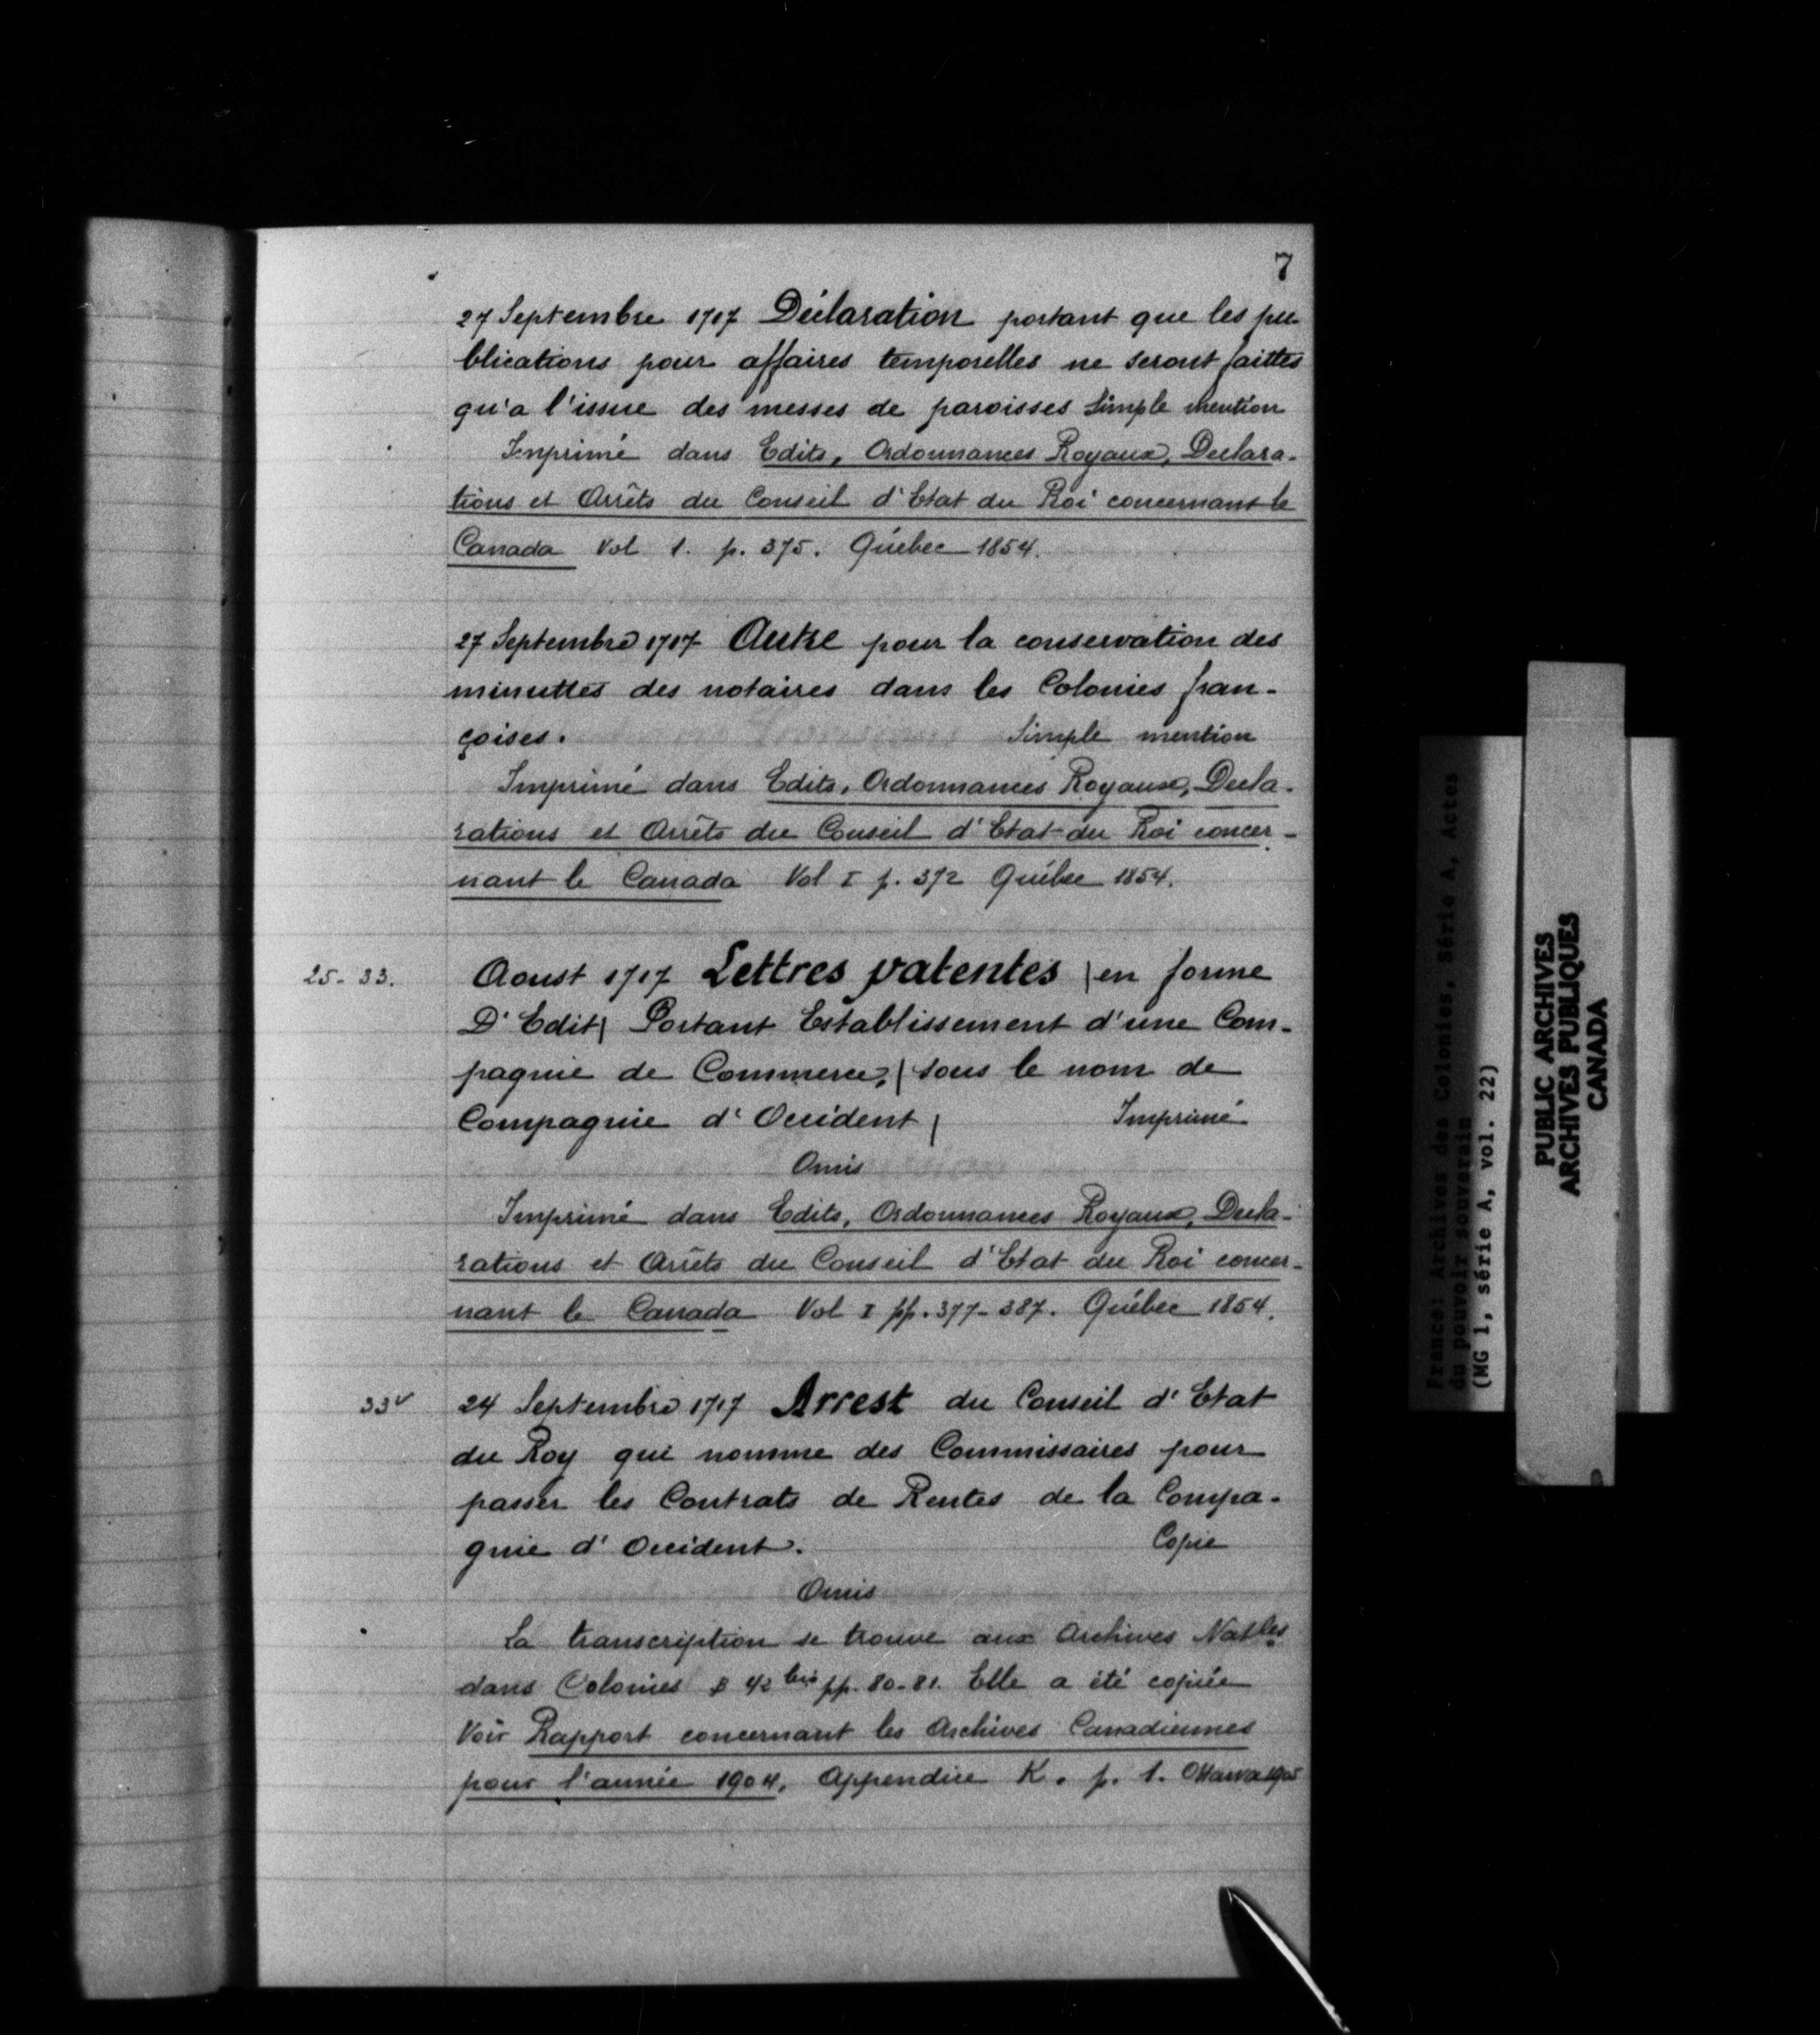 7
27 Septembre 1717 Déclaration portant que les pu-
blications pour affaires temporelles ne seront faittes
qu'a l'issue des messes de paroisses Simple mention
Imprimé dans Edits, Ordonnances Royaux, Declara-
tions et Arrêts du Conseil d'Etat du Roi concernant le
Canada Vol 1. p. 375. Québec 1854.
27 Septembre 1717 Autre pour la conservation des
minuttes des notaires dans les Colonies fran-
çoises. Simple mention
Imprimé dans Edits, Ordonnances Royaux, Decla-
rations et Arrêts du Conseil d'Etat du Roi concer-
nant le Canada Vol I p. 372 Québec 1854.
25-33. Aoust 1717 Lettres patentes (en forme
D'Edit) Portant Establissement d'une Com-
pagnie de Commerce, (sous le nom de
Compagnie d'Occident) Imprimé
Omis
Imprimé dans Edits, Ordonnances Royaux, Decla-
rations et Arrêts du Conseil d'Etat du Roi concer-
nant le Canada Vol I pp. 377-387. Québec 1854.
33v 24 Septembre 1717 Arrest du Conseil d'Etat
du Roy qui nomme des Commissaires pour
passer les Contrats de Rentes de la Compa-
gnie d'Occident. Copie
Omis
La transcription se trouve aux Archives Natles
dans Colonies B 42 bis pp. 80-81. Elle a été copiée
Voir Rapport concernant les Archives Canadiennes
pour l'année 1904, Appendice K. p. 1. Ottawa 1905
France: Archives des Colonies, Série A, Actes
du pouvoir souverain
(MG 1, série A, vol. 22)
PUBLIC ARCHIVES
ARCHIVES PUBLIQUES
CANADA